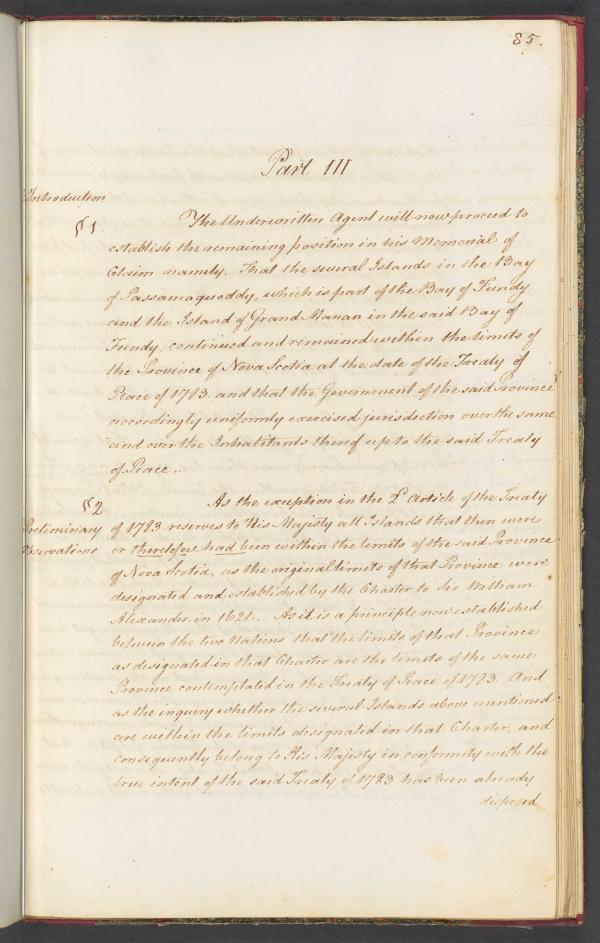 85.
Part III
Introduction
§1
The Underwritten Agent will now proceed to
establish the remaining position in his Memorial of
Claim namely. That the several Islands in the Bay
of Passamaquoddy, which is part of the Bay of Fundy
and the Island of Grand Manan in the said Bay of
Fundy, continued and remained within the limits of
the Province of Nova Scotia at the date of the Treaty of
Peace of 1783. and that the Government of the said Province
accordingly uniformly exercised jurisdiction over the same
and over the Inhabitants thereof up to the said Treaty
of Peace.
§2
Preliminary
Observations
As the exception in the 2d Article of the Treaty
of 1783 reserves to His Majesty all Islands that then were
or theretofore had been within the limits of the said Province
of Nova Scotia, as the original limits of that Province were
designated and established by the Charter to Sir William
Alexander in 1621. As it is a principle now established
between the two Nations that the limits of that Province
as designated in that Charter are the limits of the same
Province contemplated in the Treaty of Peace of 1783. And
as the inquiry whether the several Islands above mentioned
are within the limits designated in that Charter, and
consequently belong to His Majesty in conformity with the
true intent of the said Treaty of 1783 has been already
disposed